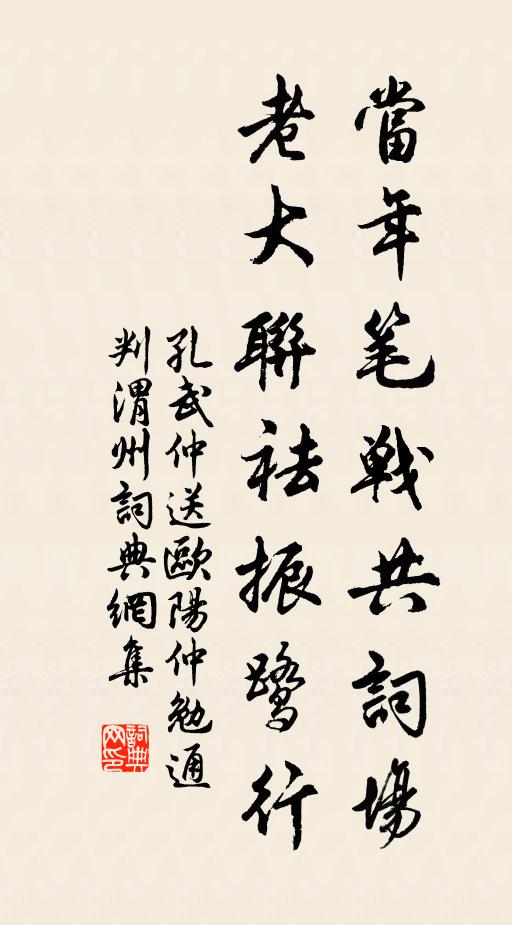 當年笔戰共詞場
老大聯袪振鷺行
孔武仲送歐陽仲勉通
判渭州詞典網集
詞典网印